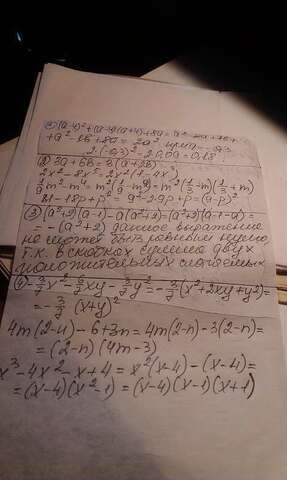 ① (a-4)²+(a-4)(a+4)+8a=a²-8a+16+
+a²-16+8a = 2a² при a=-0,3
2·(-0,3)²=2·0,09=0,18
② 3a+6b=3(a+2b)
2x²-8x³=2x²(1-4x)
m²-m⁴=m²(-m²)=m²(1/3-m)(1/3+m)
81-18p+p²=9²-2·9p+p²=(9-p)²
③ (a²+2)(a-1)-a(a²+2)=(a²+2)(a-1-a)=
=-(a²+2) данное выражение
не может быть равным нулю,
т.к. в скобках сумма двух
положительных слагаемых
④ -3/7x²-6/7xy-3/7y²=-3/7(x²+2xy+y²)=
=-3/7(x+y)²
4m(2-n)-6+3n=4m(2-n)-3(2-n)=
=(2-n)(4m-3)
x³-4x²-x+4=x²(x-4)-(x-4)=
=(x-4)(x²-1)=(x-4)(x-1)(x+1)